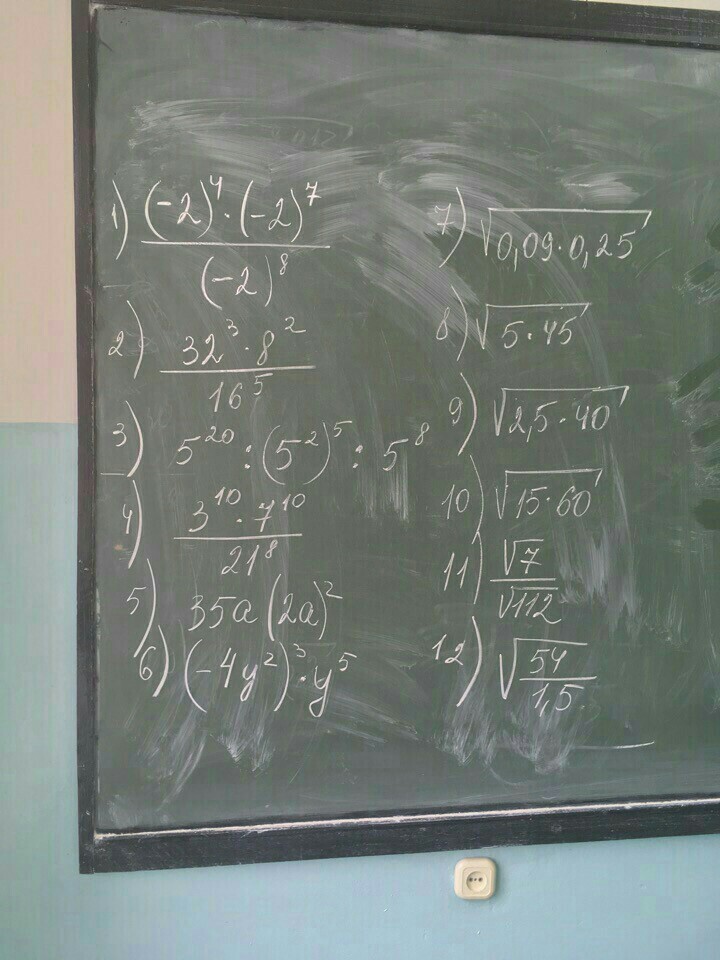 1) \frac{(-2)^4 \cdot (-2)^7}{(-2)^8}
2) \frac{32^3 \cdot 8^2}{16^5}
3) 5^{20} : (5^2)^5 : 5^8
4) \frac{3^{10} \cdot 7^{10}}{21^8}
5) 35a(2a)^2
6) (-4y^2)^3 \cdot y^5
7) \sqrt{0,09 \cdot 0,25}
8) \sqrt{5 \cdot 45}
9) \sqrt{2,5 \cdot 40}
10) \sqrt{15 \cdot 60}
11) \frac{\sqrt{7}}{\sqrt{112}}
12) \sqrt{\frac{54}{1,5}}